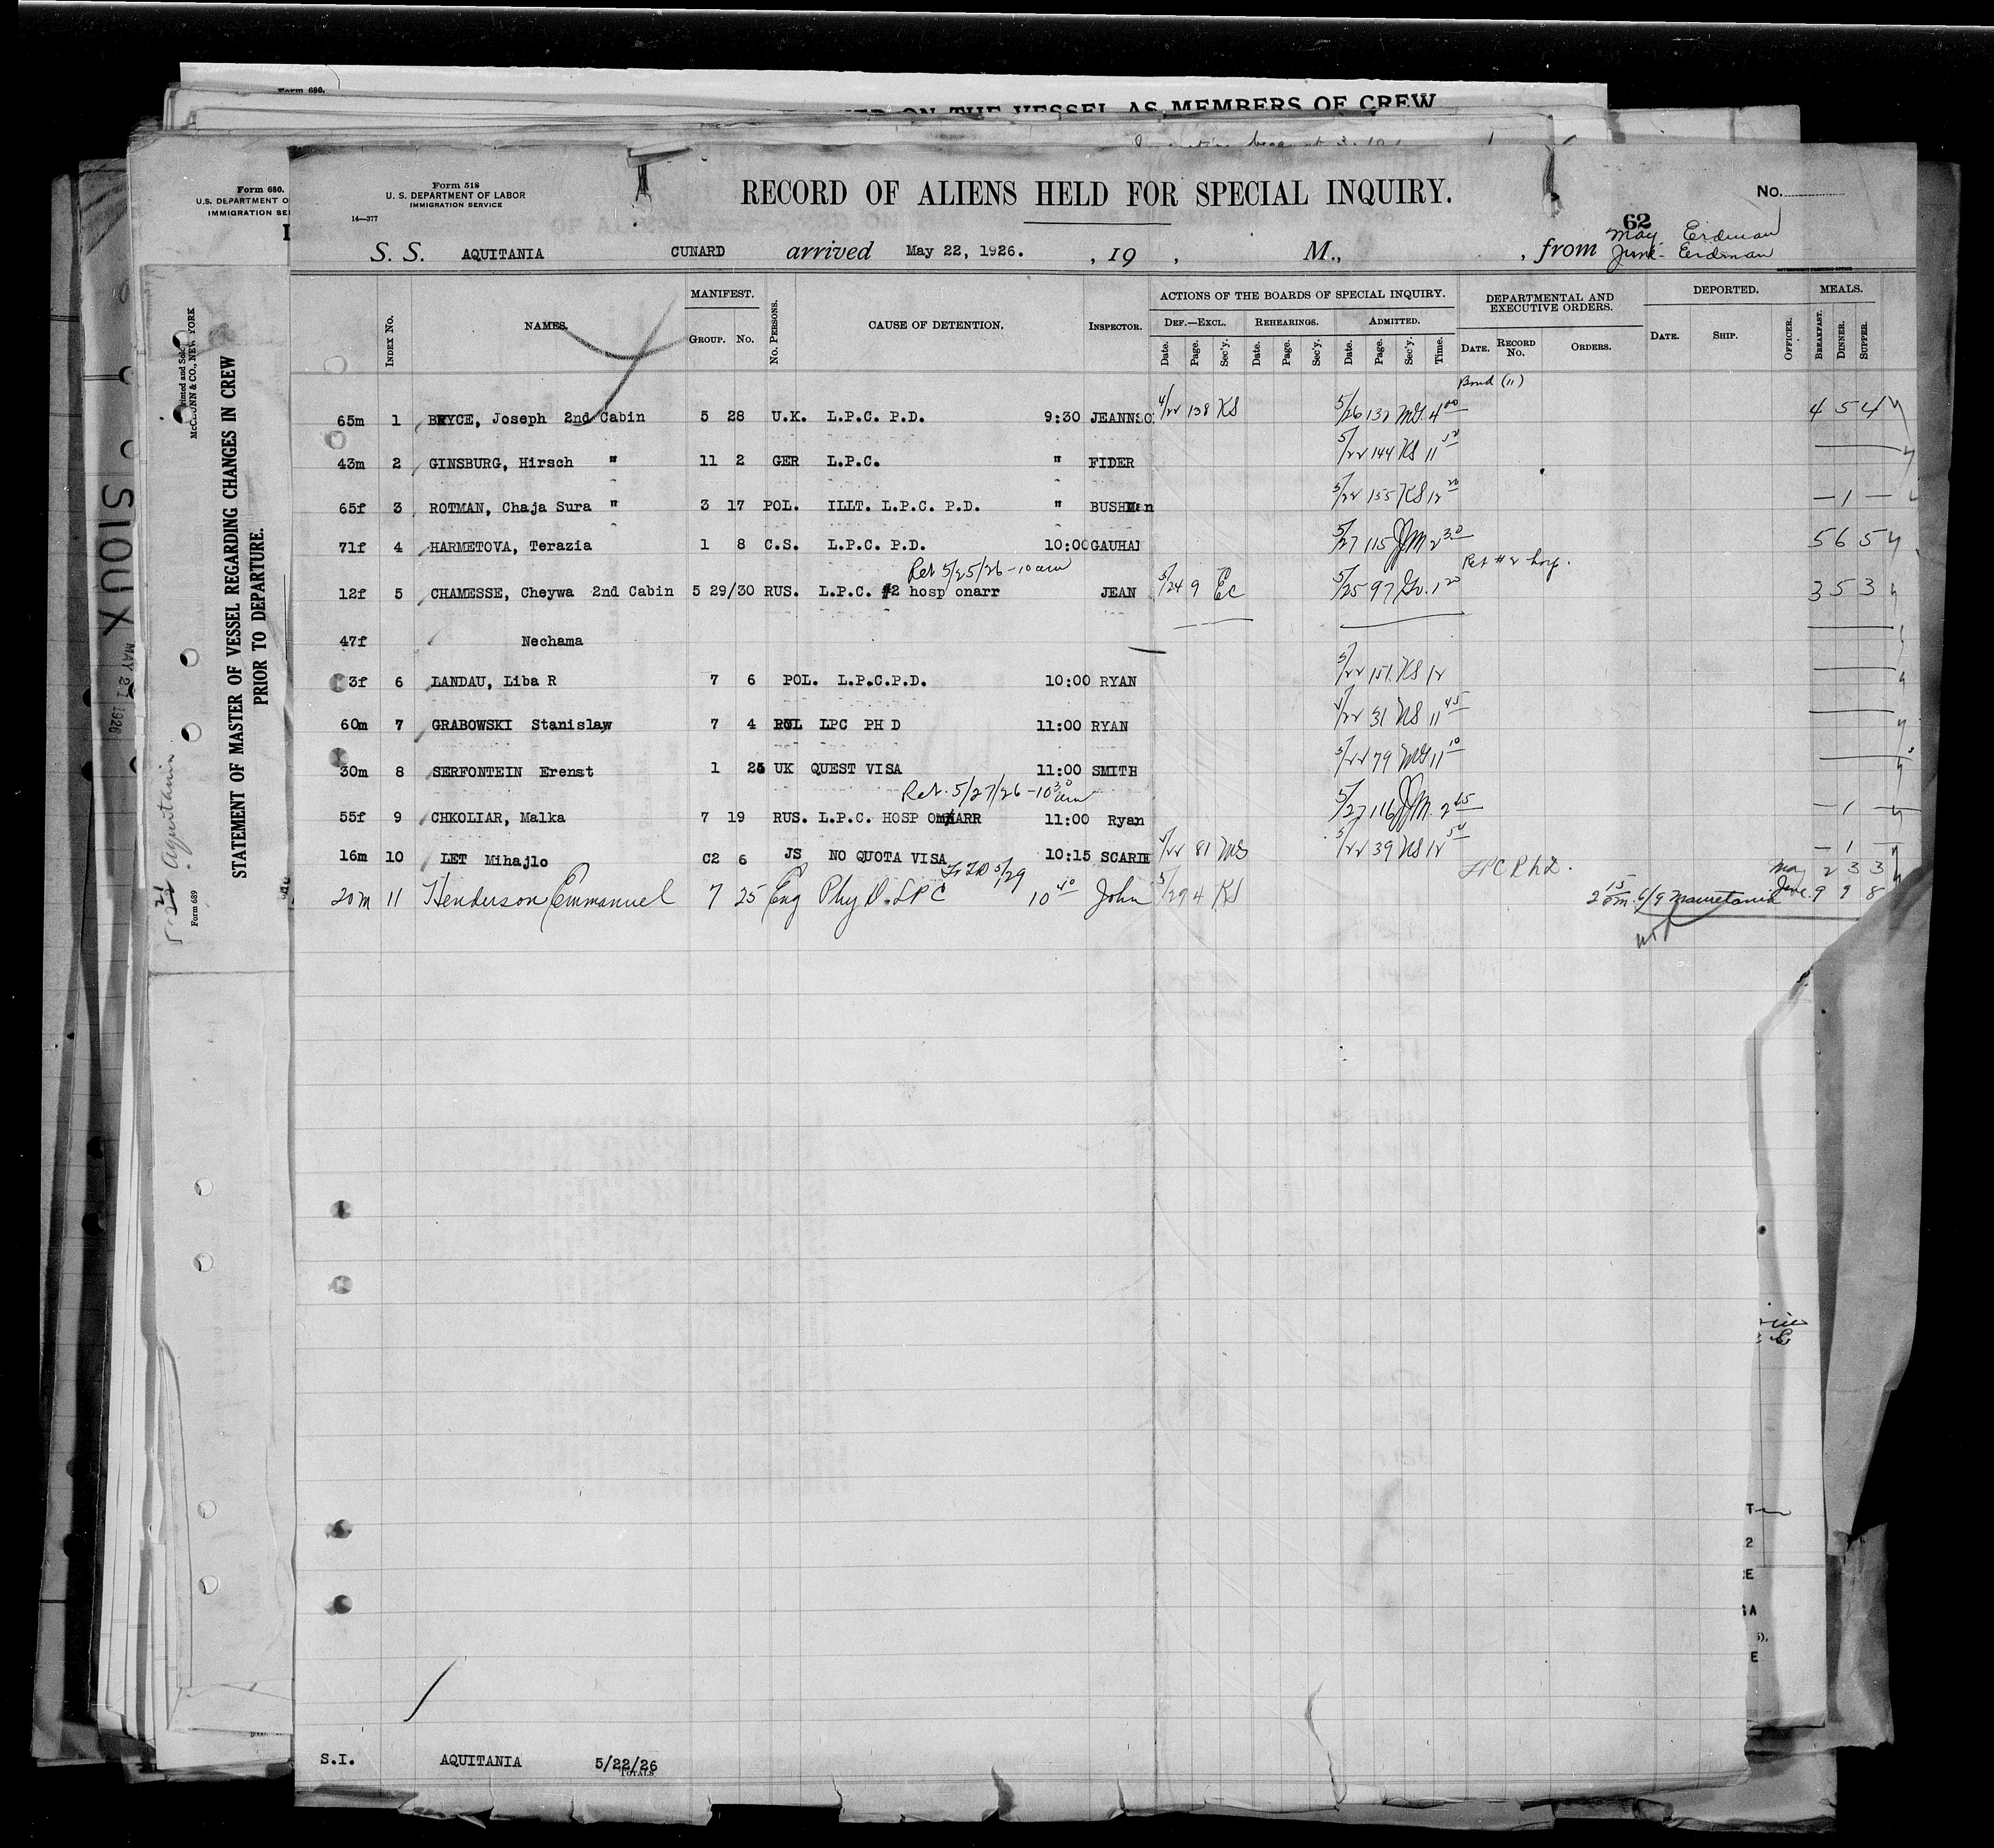 Form 680.
ON THE VESSEL AS MEMBERS OF CREW
Form 680.
U.S. DEPARTMENT O
IMMIGRATION SE
Form 518
U. S. DEPARTMENT OF LABOR
IMMIGRATION SERVICE
14—377
RECORD OF ALIENS HELD FOR SPECIAL INQUIRY.
No.
62
S. S. AQUITANIA CUNARD arrived May 22, 1926. , 19 , M., , from May - Erdman
June - Erdman
INDEX No. NAMES. MANIFEST. GROUP. No. No. PERSONS. CAUSE OF DETENTION. INSPECTOR.
ACTIONS OF THE BOARDS OF SPECIAL INQUIRY. DEF.—EXCL. REHEARINGS. ADMITTED.
Date. Page. Sec'y. Date. Page. Sec'y. Date. Page. Sec'y. Time.
DEPARTMENTAL AND EXECUTIVE ORDERS. DATE. RECORD No. ORDERS.
DEPORTED. DATE. SHIP. OFFICER. MEALS. BREAKFAST. DINNER. SUPPER.
Bond (11)
65m 1 BRYCE, Joseph 2nd Cabin 5 28 U.K. L.P.C. P.D. 9:30 JEANNSO 4/22 138 KS 5/26 132 MS. 4 00 4 5 4
43m 2 GINSBURG, Hirsch " 11 2 GER L.P.C. " FIDER 5/22 144 KS 11 50
65f 3 ROTMAN, Chaja Sura " 3 17 POL. ILLT. L.P.C. P.D. " BUSHMan 5/22 155 KS 12 20 — 1 —
71f 4 HARMETOVA, Terazia 1 8 C.S. L.P.C. P.D. 10:00 GAUHAN 5/27 115 JJM 2 30 5 6 5
Ret 5/25/26 - 10 am Ret # 2 hosp.
12f 5 CHAMESSE, Cheywa 2nd Cabin 5 29/30 RUS. L.P.C. #2 hosp onarr JEAN 5/24 9 EC 5/25 97 1 20 3 5 3
47f Nechama
3f 6 LANDAU, Liba R 7 6 POL. L.P.C.P.D. 10:00 RYAN 5/22 151 KS 12
60m 7 GRABOWSKI Stanislaw 7 4 POL LPC PH D 11:00 RYAN 4/22 31 NS 11 45
30m 8 SERFONTEIN Erenst 1 25 UK QUEST VISA 11:00 SMITH 5/22 79 MS 11 10
Ret. 5/27/26 - 10 30 am
55f 9 CHKOLIAR, Malka 7 19 RUS. L.P.C. HOSP ONARR 11:00 Ryan 5/27 116 JJM. 2 45 — 1 —
16m 10 LET Mihajlo C2 6 JS NO QUOTA VISA 10:15 SCARIE 5/22 81 MS 5/22 39 NS 12 50 — 1 —
5/29 LPC Ph D. May 2 3 3
20m 11 Henderson Emmanuel 7 25 Eng Phy D. LPC 10 40 John 5/29 4 KS 2 15 pm. 6/9 Mauretania June. 9 9 8
S.I. AQUITANIA 5/22/26
TOTALS
STATEMENT OF MASTER OF VESSEL REGARDING CHANGES IN CREW
PRIOR TO DEPARTURE.
Form 689
Aquitania
SIOUX
MAY 21 1926